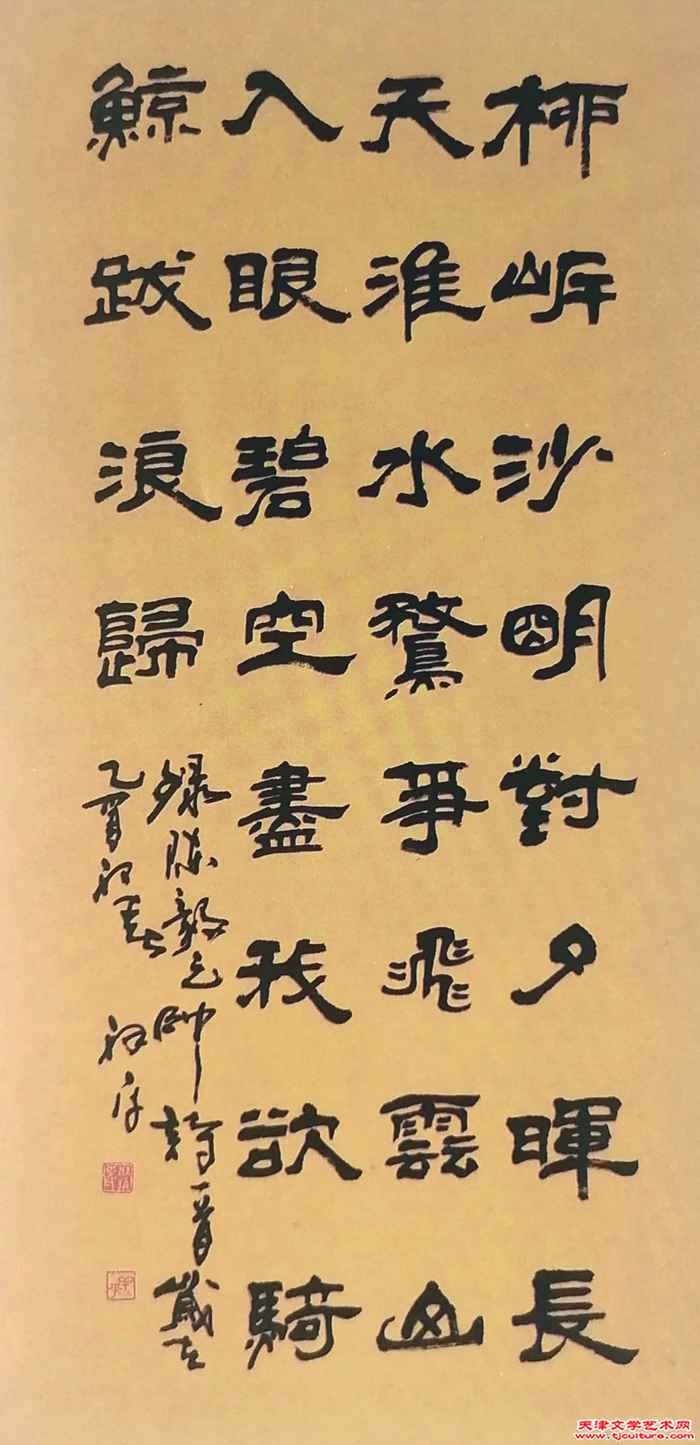 柳岍沙明對夕暉長
天淮水鶩爭飛雲山
入眼碧空盡我欲騎
鯨跋浪歸
録陳毅元帥詩一首歲在
乙酉初春
天津文学艺术网
www.tjculture.com